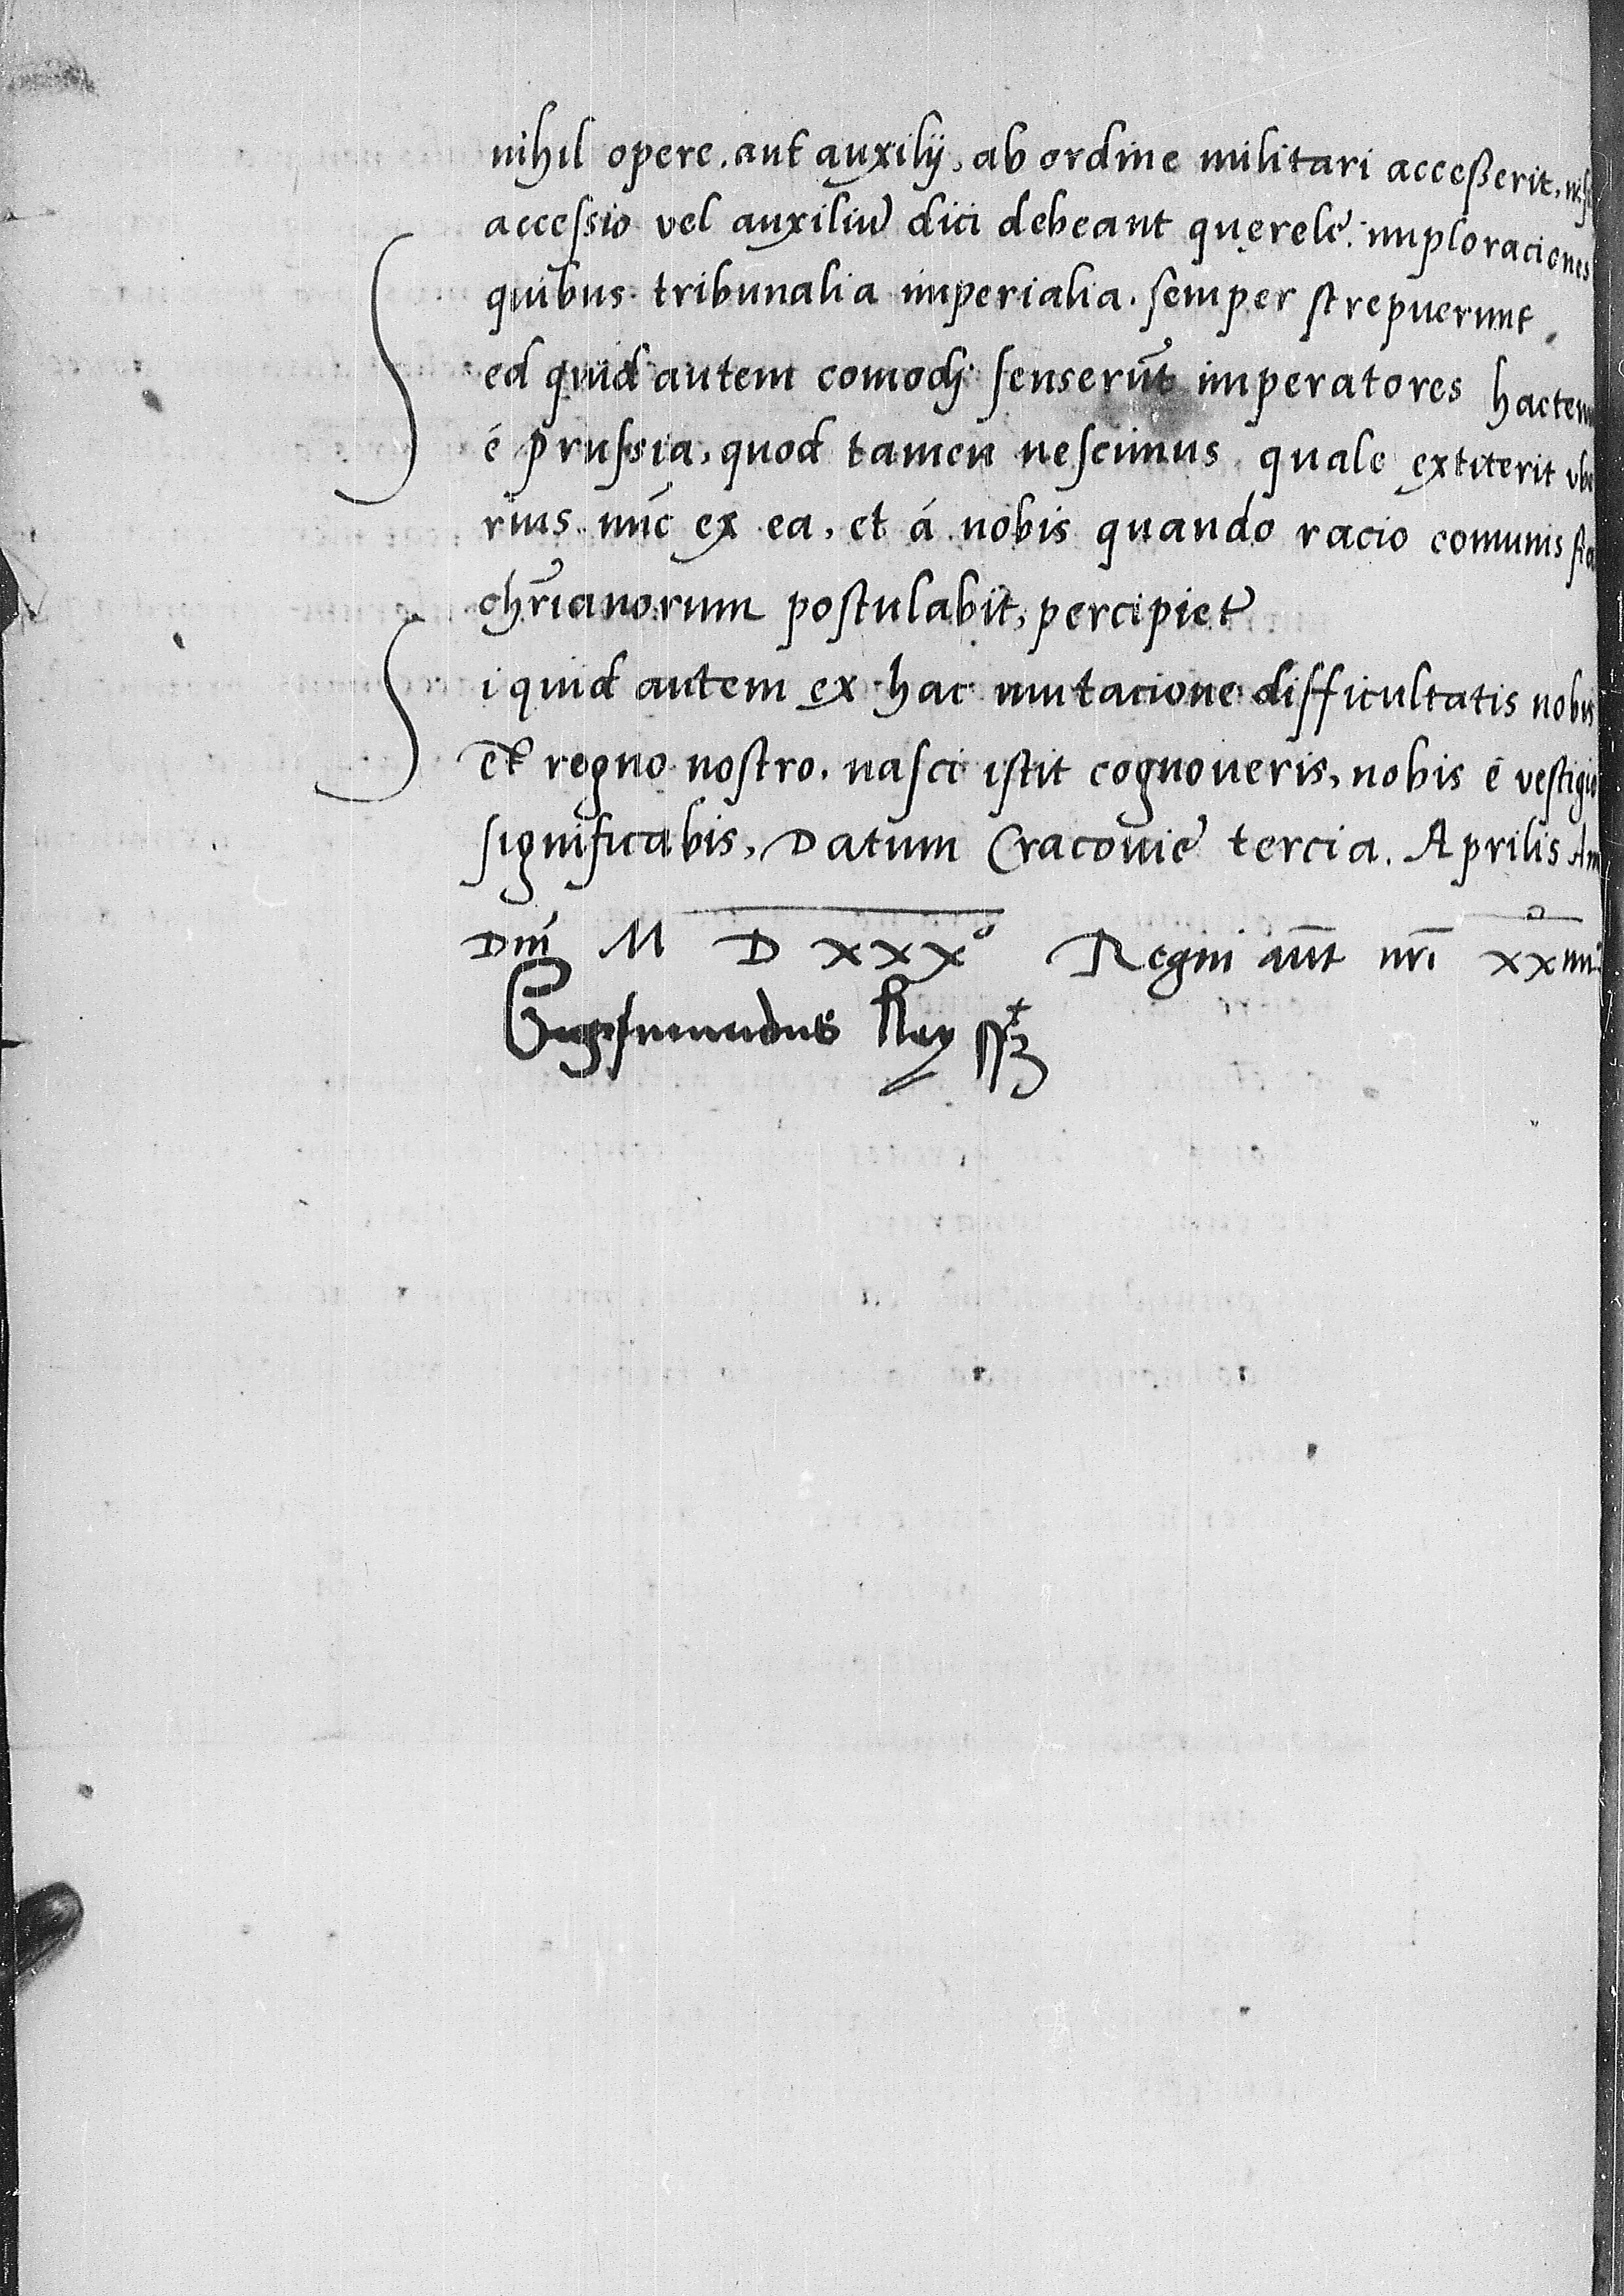 nihil opere, aut auxilij, ab ordine militari acceßerit, nisi
accessio vel auxiliũ dici debeant querelę. imploraciones
quibus tribunalia imperialia. semper strepuerunt.
Sed quid autem comodj senserũt imperatores hacten
é prussia, quod tamen nescimus, quale extiterit vbe
rius nũc ex ea, et á nobis quando racio comunis
chr̃ianorum postulabit, percipiet̃
Si quid autem ex hac mutacione difficultatis nobis
et regno nostro, nasci istit cognoveris, nobis é vestigio
significabis, Datum Cracovię tercia. Aprilis An
Dñi M D xxx° Regni aũt nr̃i xxiiii°
Sigismundus Rex sst